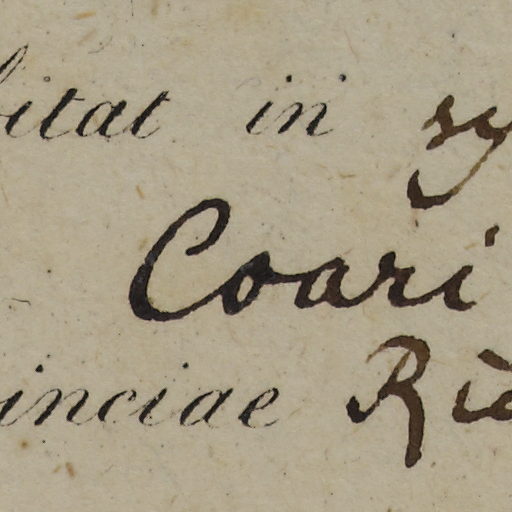 bitat in sy
Coari
inciae Rio